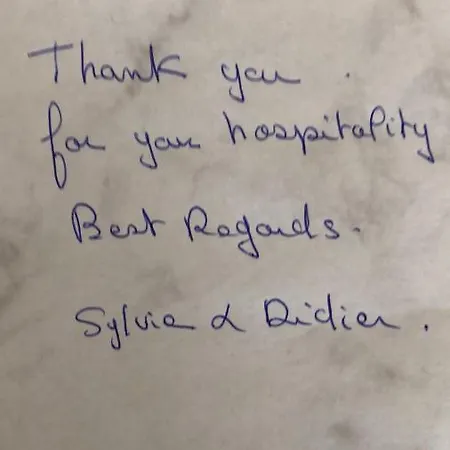 Thank you.
for your hospitality
Best Regards.
Sylvie & Didier.